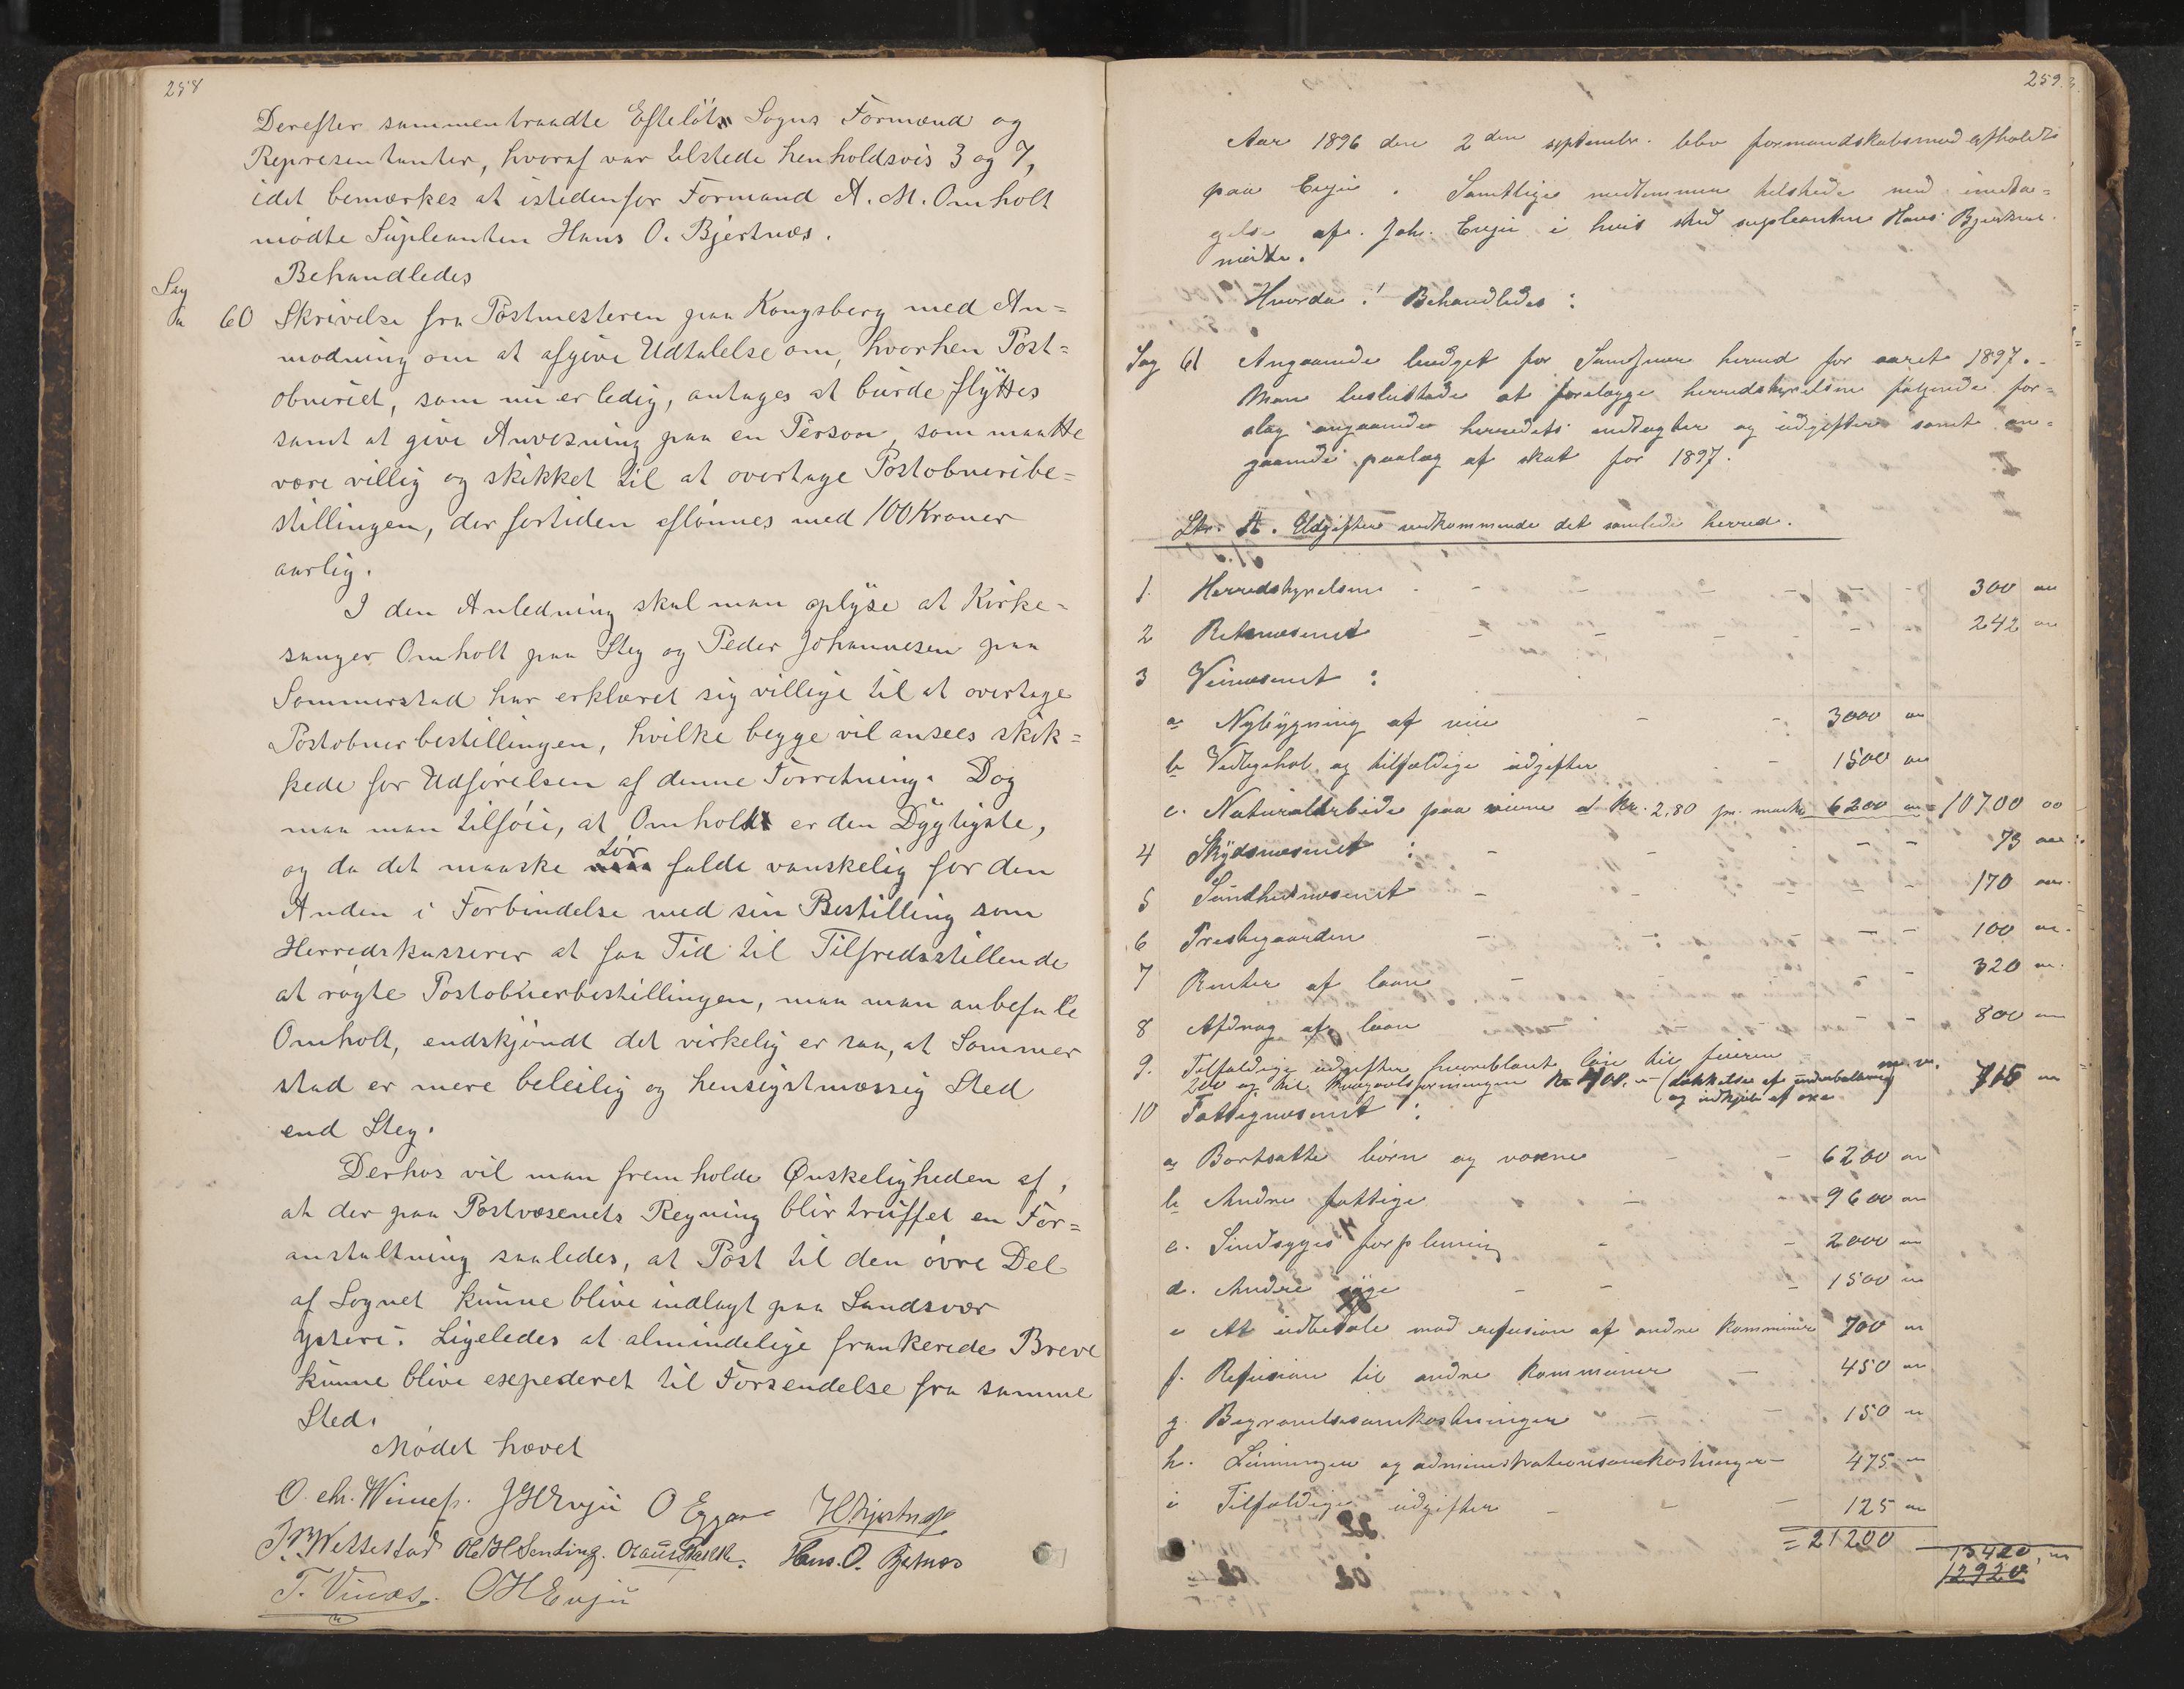 258
Derefter sammentraadte Efteløts Sogns Formænd og
Repræsentanter, hvoraf var tilstede henholdsvis 3 og 7,
idet bemærkes at istedenfor Formand A. M. Omholt
mødte Supleanten Hans O. Bjertnæs.
Behandledes
Sag
60 Skrivelse fra Postmesteren paa Kongsberg med An=
modning om at afgive Udtalelse om, hvorhen Post=
obneriet, som nu er ledig, antages at burde flyttes
samt at give Anvisning paa en Person, som maatte
være villig og skikket til at overtage Postobneribe=
stillingen, der fortiden aflønnes med 100 Kroner
aarlig.
I den Anledning skal man oplyse at Kirke=
sanger Omholt paa Steg og Peder Johannesen paa
Sommerstad har erklæret sig villige til at overtage
Postobnerbestillingen, hvilke begge vil ansees skik=
kede for Udførelsen af denne Forretning. Dog
maa man tilføie, at Omholt er den Dygtigste,
og da det maaske tør falde vanskelig for den
Anden i Forbindelse med sin Bestilling som
Herredskasserer at faa Tid til Tilfredsstillende
at røgte Postobnerbestillingen, maa man anbefale
Omholt, endskjøndt det virkelig er saa, at Sommer
stad er mere beleilig og hensigtsmæssig Sted
end Steg.
Derhos vil man fremholde Ønskeligheden af,
at der paa Postvæsenets Regning blir truffet en For=
anstaltning saaledes, at Post til den øvre Del
af Sognet kunne blive indlagt paa Sandsvær
Ysteri. Ligeledes at almindelige frankerede Breve
kunne blive expederet til Forsendelse fra samme
Sted.
Mødet hævet
O. Chr. JHEvju O Eggar H Bjertnæs
Wettestad Ole H Sending. Hans. O. Bjetnæs
T. Vinæs. OHEvju
259.
Aar 1896 den 2den septembr. blev formandskabsmød afholdt
paa Evju. Samtlige medlemmer tilstede med undta=
gelse af Joh. Evju i hvis sted supleanten Hans Bjertnæs
mødte.
Hvorda! Behandledes:
Sag 61 Angaaende budget for Sandsvær herred for aaret 1897.
Man besluttede at forelægge herredstyrelsen følgende for=
slag angaaende herredets indtægter og udgifter samt an=
gaaende paalæg af skat for 1897.
Litr. A. Udgifter vedkommende det samlede herred.
1. Herredstyrelsen 300
2 Retsvæsenet 242
3 Veivæsenet:
a Nybygning af veie 3000
b Vedligehol. og tilfældige udgifter 1500
c. Naturalarbeide paa veiene a kr. 2,80 pr. mark 6200 = 10700 00
4 Skydsvæsenet: 73
5 Sundhedsvæsenet 170
6 Prestegaarden 100
7 Renter af laan 320
8 Afdrag af laan 800
9. Tilfældige udgifter hvoriblant løn til feieren
og til Kvægavlsforeningen (dækkelse af underbalance m. v. 715
og indkjøb af oxe)
10 Fattigvæsenet:
a Bortsatte børn og voxne 6200
b Andre fattige 9600
c. Sindsyges forpleining 2000
d. Andre syge 1500
e At udbetale mod refusion af andre kommuner 700
f. Refusion til andre kommuner 450
g. Begravelsesomkostninger 150
h. Lønninger og administrationsomkostninger 475
i Tilfældige udgifter 125
= 21200
13420
12920